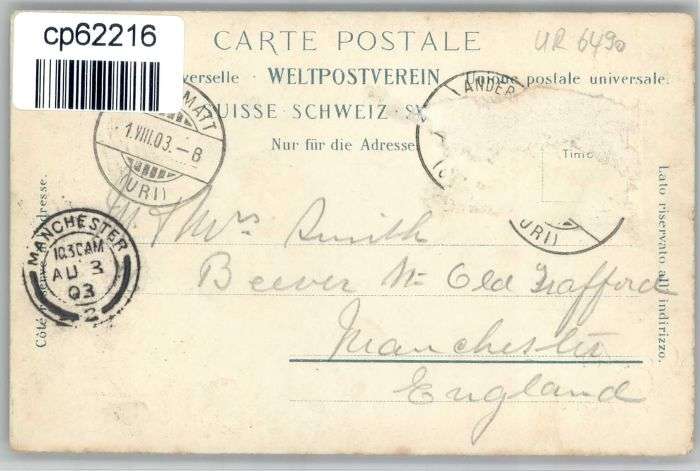 cp62216
UR 6490
CARTE POSTALE
verselle · WELTPOSTVEREIN · Unione postale universale.
UISSE · SCHWEIZ · SV
Nur für die Adresse
MATT
1.VIII.03.–8
(URI)
ANDER
Timb
URI)
MANCHESTER
10.30AM
AU 3
03
2
Côté
dresse.
Lato riservato all' indirizzo.
Mrs Smith
Beever St Old Trafford
Manchester
England